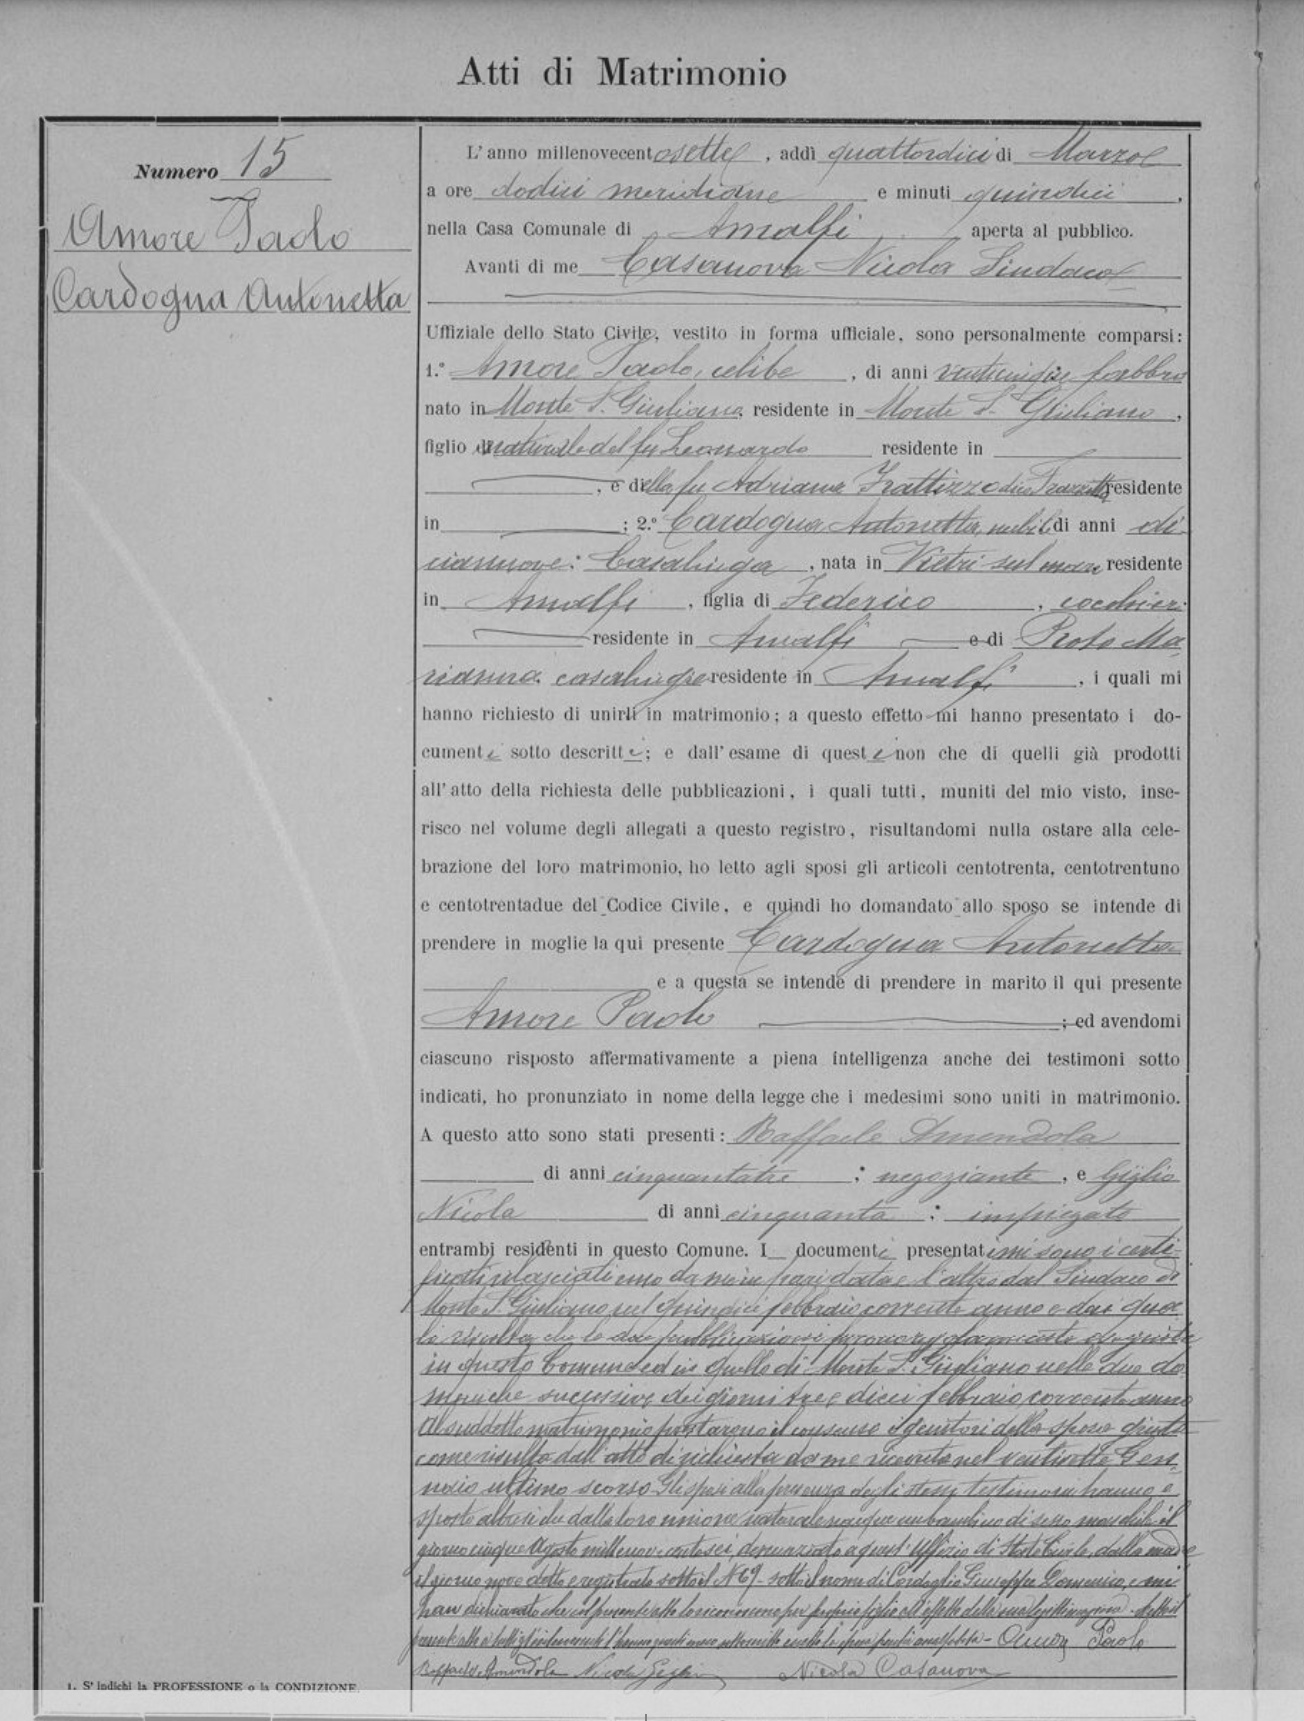 Atti di Matrimonio
Numero 15
Amore Paolo
Cardogna Antonetta
L'anno millenovecentosette, addì quattordici di Marzo
a ore dodici meridiane e minuti quindici,
nella Casa Comunale di Amalfi aperta al pubblico.
Avanti di me Casanova Nicola Sindaco
Uffiziale dello Stato Civile, vestito in forma ufficiale, sono personalmente comparsi:
1.° Amore Paolo, celibe, di anni venticinque fabbro
nato in Monte S. Giuliano, residente in Monte S. Giuliano,
figlio di naturale del fu Leonardo residente in
, e della fu Adriana residente
in ; 2.° Cardogna Antonetta, nubile di anni di-
ciannove: Casalinga, nata in Vietri sul mare residente
in Amalfi, figlia di Federico, cocchiere
residente in Amalfi e di Proto Ma-
rianna, casalinga residente in Amalfi, i quali mi
hanno richiesto di unirli in matrimonio; a questo effetto mi hanno presentato i do-
cumenti sotto descritti; e dall'esame di questi non che di quelli già prodotti
all'atto della richiesta delle pubblicazioni, i quali tutti, muniti del mio visto, inse-
risco nel volume degli allegati a questo registro, risultandomi nulla ostare alla cele-
brazione del loro matrimonio, ho letto agli sposi gli articoli centotrenta, centotrentuno
e centotrentadue del Codice Civile, e quindi ho domandato allo sposo se intende di
prendere in moglie la qui presente Cardogna Antonetta
e a questa se intende di prendere in marito il qui presente
Amore Paolo ; ed avendomi
ciascuno risposto affermativamente a piena intelligenza anche dei testimoni sotto
indicati, ho pronunziato in nome della legge che i medesimi sono uniti in matrimonio.
A questo atto sono stati presenti: Raffaele Amendola
di anni cinquantatre; negoziante, e Giglio
Nicola di anni cinquanta; impiegato
entrambi residenti in questo Comune. I documenti presentatimi sono i certi-
ficati rilasciati uno da me in pari data e l'altro dal Sindaco di
Monte S. Giuliano nel quindici febbraio corrente anno e dai qua-
li risulta che le due pubblicazioni furono eseguite
in questo Comune ed in quello di Monte S. Giuliano nelle due do-
meniche successive dei giorni tre e dieci febbraio corrente anno
Al suddetto matrimonio prestarono il consenso i genitori della sposa giusta
come risulta dall'atto di richiesta da me ricevuto nel ventisette Gen-
naio ultimo scorso. Gli sposi alla presenza degli stessi testimoni hanno e-
sposto altresì che dalla loro unione naturale nacque un bambino di sesso maschile il
giorno cinque Agosto millenovecentosei, denunziato a quest'Uffizio di Stato Civile, dalla madre
il giorno nove detto e registrato sotto il N 69 sotto il nome di Giuseppe Domenico, e mi
han dichiarato che col presente atto lo riconoscono per proprio figlio all'effetto della sua legittimazione. Letto il
presente atto a tutti gl'intervenuti l'hanno meco sottoscritto la sposa perché analfabeta - Amore Paolo
Raffaele Amendola Nicola Giglio Nicola Casanova
1. S'indichi la PROFESSIONE o la CONDIZIONE.